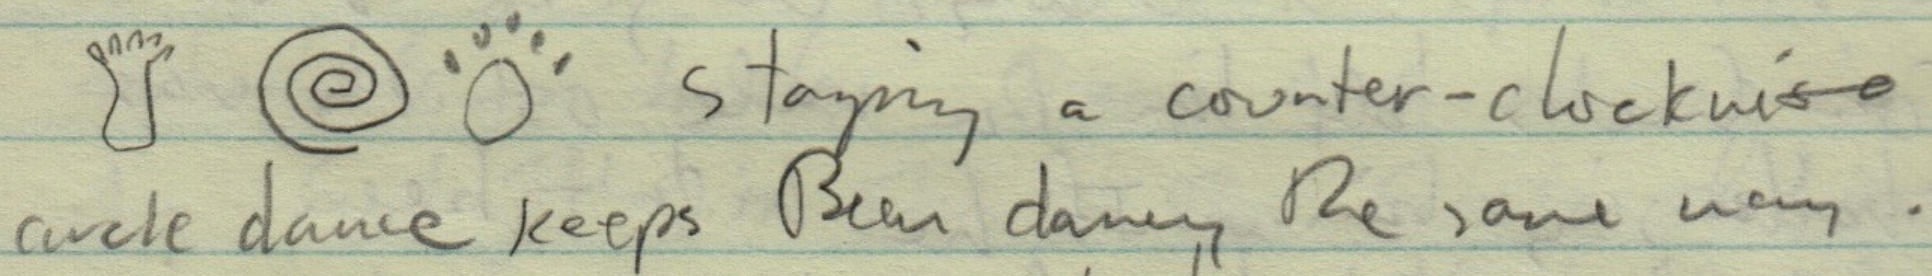 staying a counter-clockwise
circle dance keeps Bear dancing the same way.